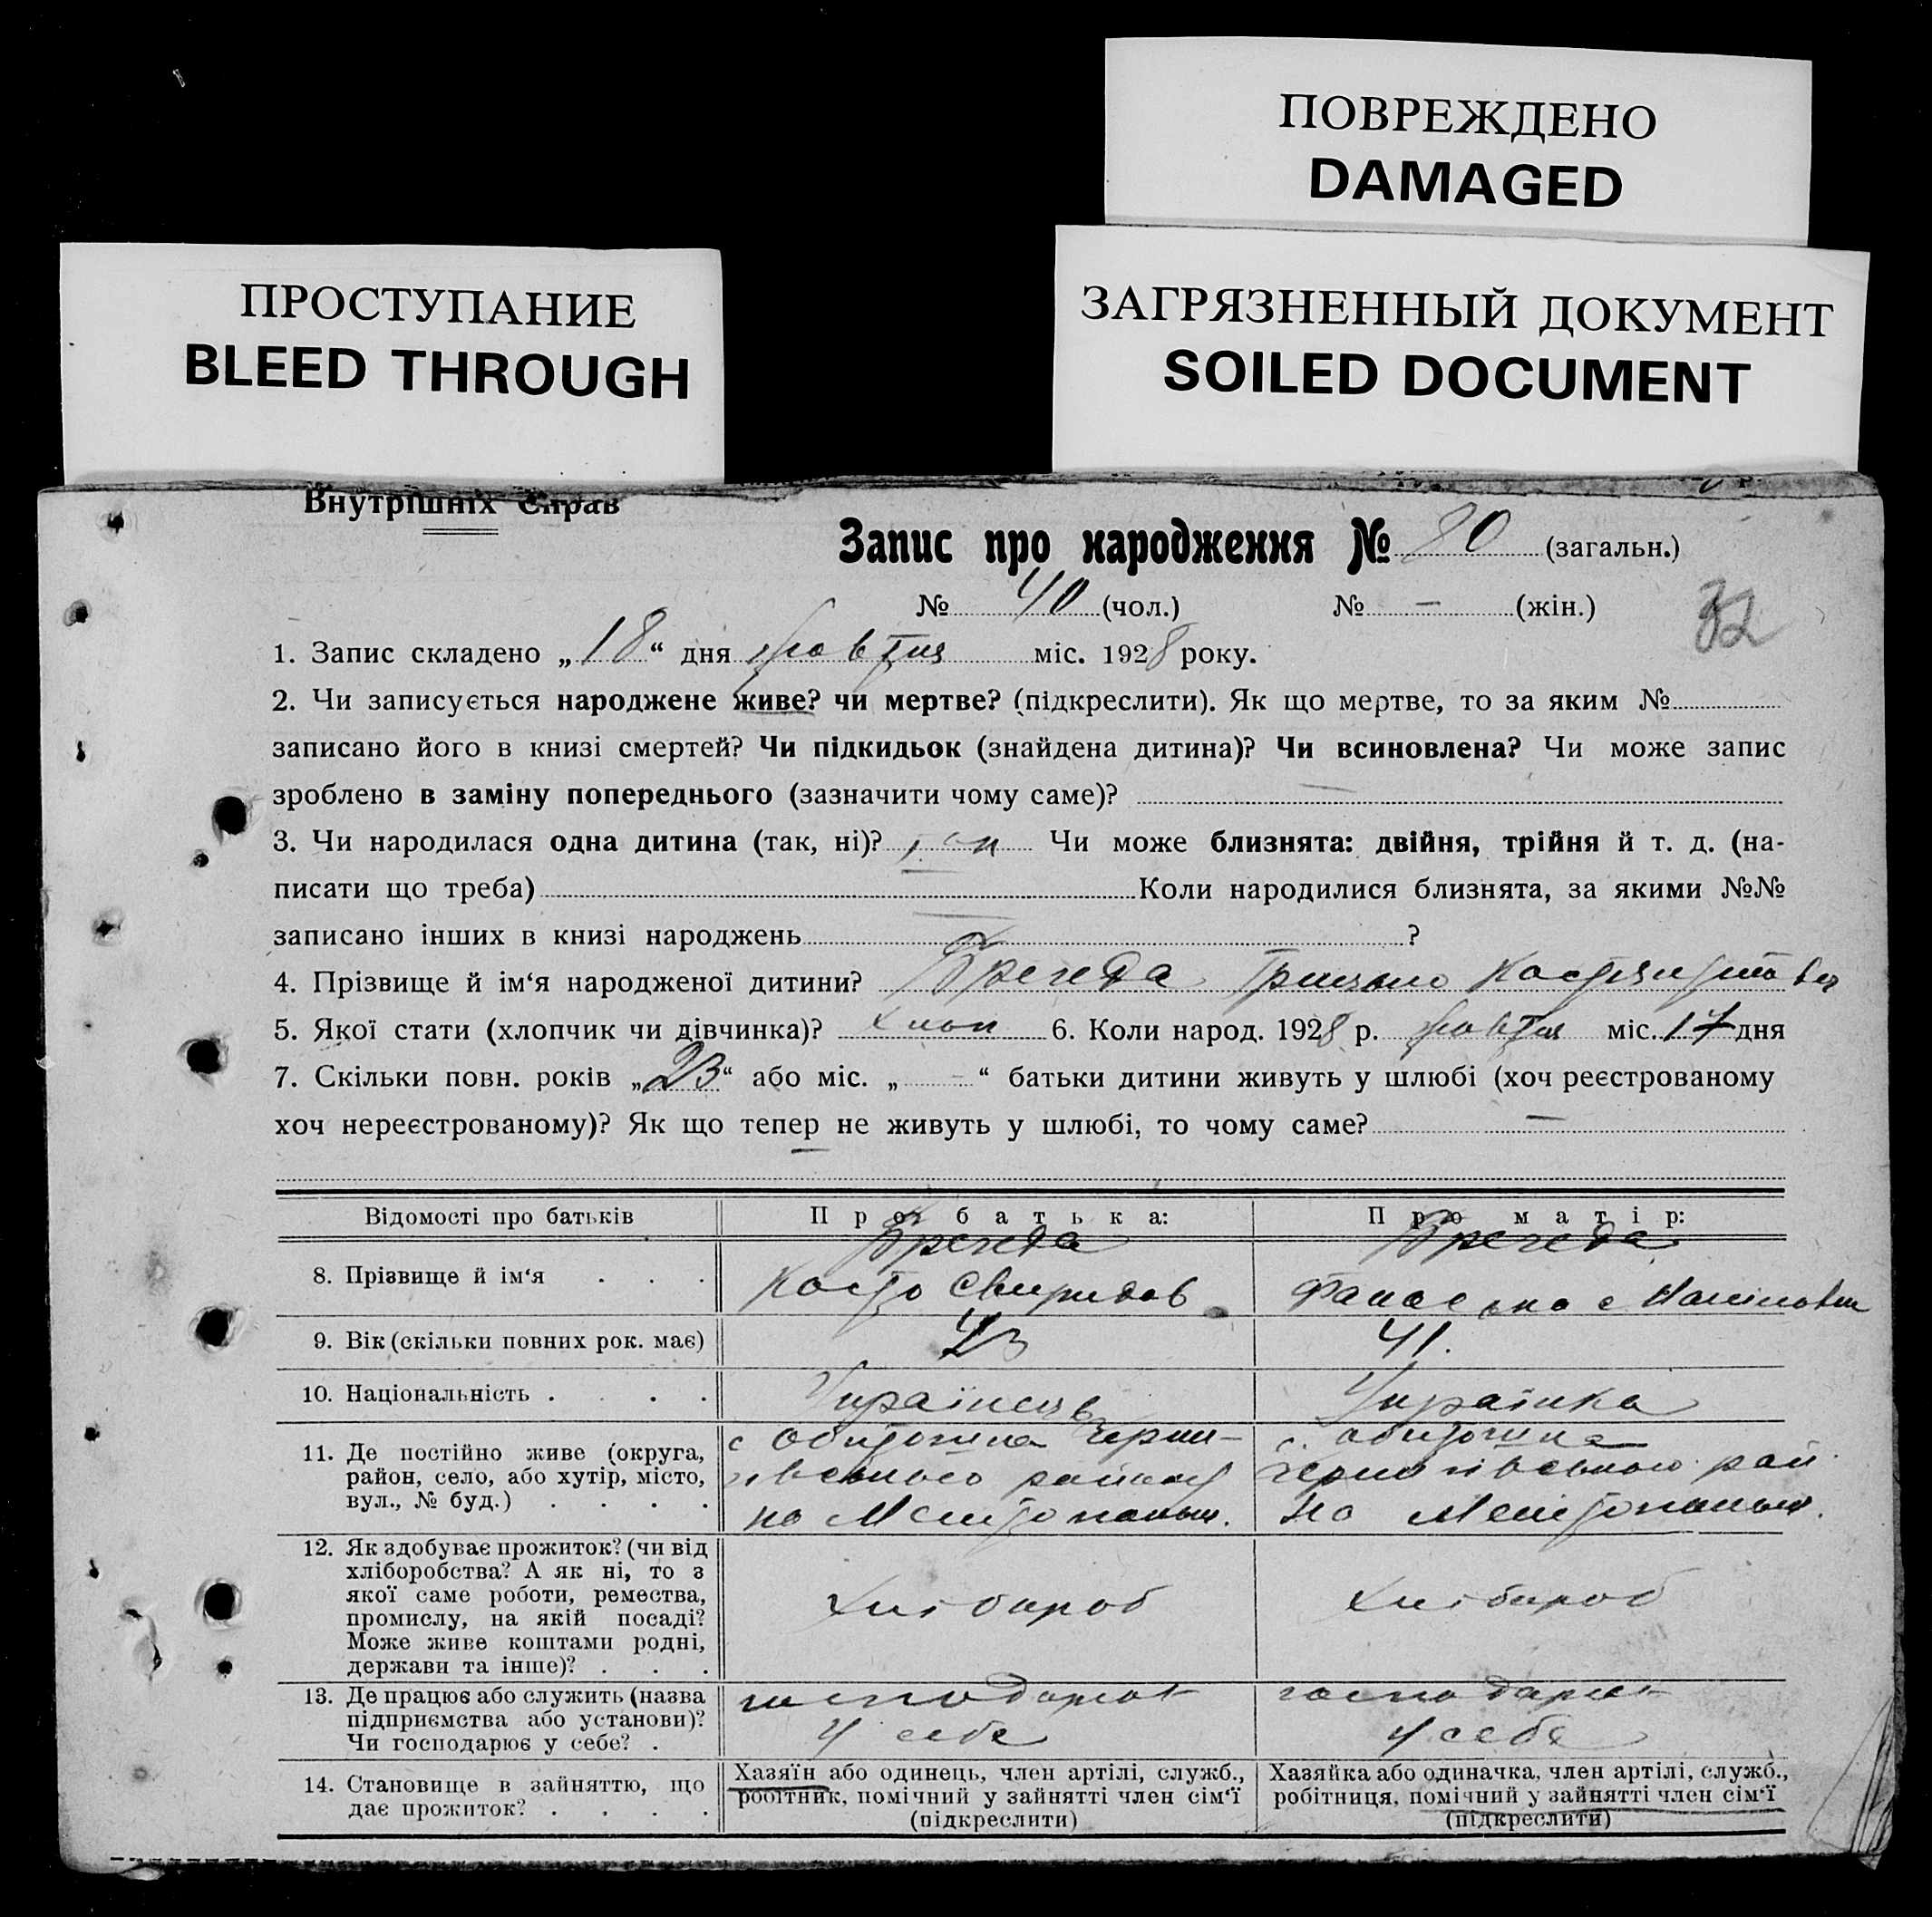 ПОВРЕЖДЕНО
DAMAGED
ПРОСТУПАНИЕ
BLEED THROUGH
ЗАГРЯЗНЕННЫЙ ДОКУМЕНТ
SOILED DOCUMENT
Внутрішніх Справ
Запис про народження № 80 (загальн.)
№ 40 (чол.) № — (жін.)
32
1. Запис складено „18“ дня жовтня міс. 1928 року.
2. Чи записується народжене живе? чи мертве? (підкреслити). Як що мертве, то за яким №
записано його в книзі смертей? Чи підкидьок (знайдена дитина)? Чи всиновлена? Чи може запис
зроблено в заміну попереднього (зазначити чому саме)? —
3. Чи народилася одна дитина (так, ні)? так Чи може близнята: двійня, трійня й т. д. (на-
писати що треба) Коли народилися близнята, за якими №№
записано інших в книзі народжень — ?
4. Прізвище й ім‘я народженої дитини? Грицько
5. Якої стати (хлопчик чи дівчинка)? хлоп 6. Коли народ. 1928 р. жовтня міс. 17 дня
7. Скільки повн. років „23“ або міс. „ - “ батьки дитини живуть у шлюбі (хоч реєстрованому
хоч нереєстрованому)? Як що тепер не живуть у шлюбі, то чому саме? —
Відомості про батьків Про батька: Про матір:
8. Прізвище й ім‘я Свиридов
9. Вік (скільки повних рок. має) 43 41.
10. Національність Українець Українка
11. Де постійно живе (округа,
район, село, або хутір, місто,
вул., № буд.)
с Обиточна Черни-
гівського району
на Мелітопольщ.
с. Обиточна
Чернигівського рай
на Мелітопольщ.
12. Як здобуває прожиток? (чи від
хліборобства? А як ні, то з
якої саме роботи, ремества,
промислу, на якій посаді?
Може живе коштами родні,
держави та інше)?
Хлібороб Хлібороб
13. Де працює або служить (назва
підприємства або установи)?
Чи господарює у себе?
у себе
у себе
14. Становище в зайняттю, що
дає прожиток?
Хазяїн або одинець, член артілі, служб.,
робітник, помічний у зайнятті член сім‘ї
(підкреслити)
Хазяйка або одиначка, член артілі, служб.,
робітниця, помічний у зайнятті член сім‘ї
(підкреслити)